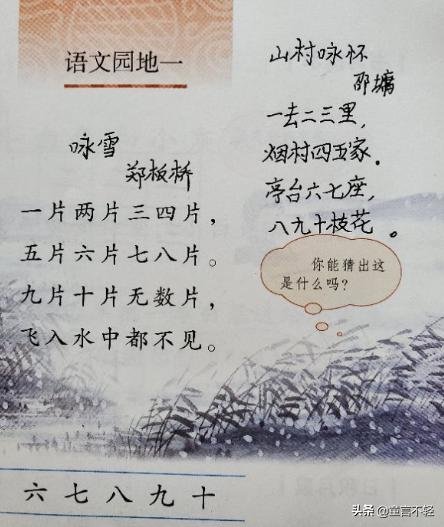 语文园地一
咏雪
郑板桥
一片两片三四片，
五片六片七八片。
九片十片无数片，
飞入水中都不见。
山村咏怀
邵墉
一去二三里，
烟村四五家。
亭台六七座，
八九十枝花。
你能猜出这
是什么吗？
六七八九十
头条 @童言不轻